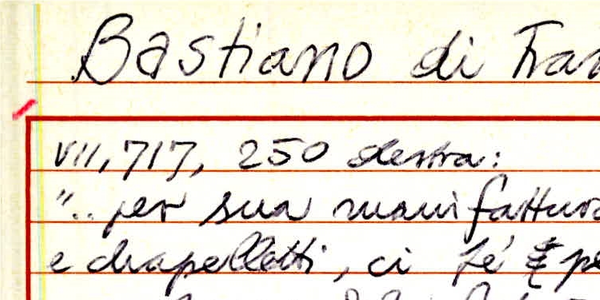 Bastiano di Fran
VII, 717, 250 destra:
".. per sua manifattura
e chapelletti, ci fé